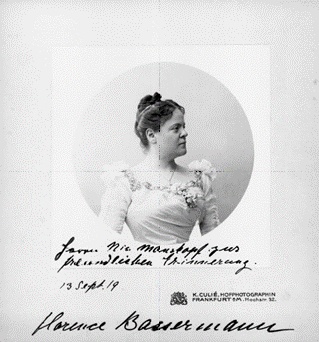 Herrn Nic Manskopf zur
freundlichen Erinnerung.
13 Sept. 19
K. CULIÉ, HOFPHOTOGRAPHIN
FRANKFURT a/M. Hochstr. 32.
Florence Bassermann